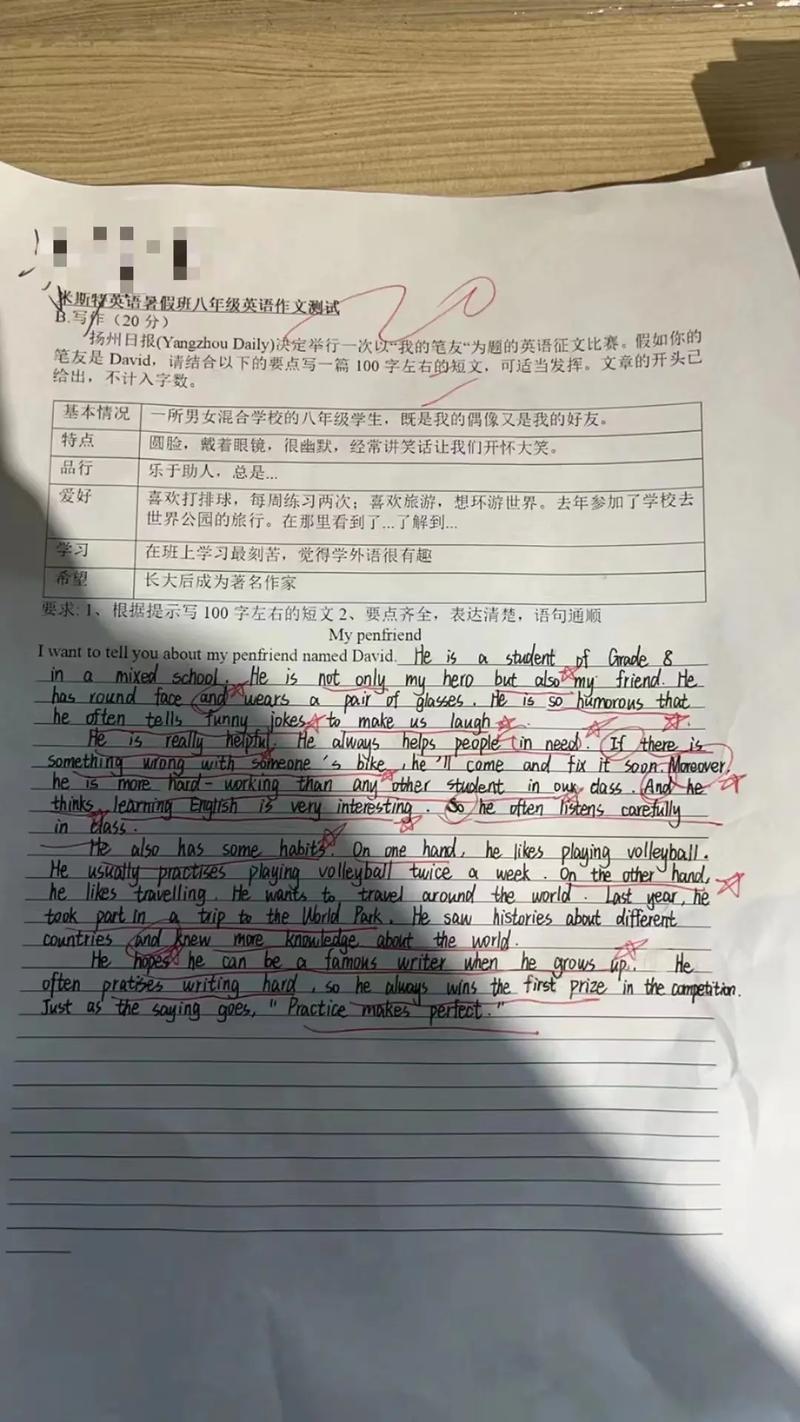 米斯特英语暑假班八年级英语作文测试
B.写作（20 分）
扬州日报(Yangzhou Daily)决定举行一次以“我的笔友“为题的英语征文比赛。假如你的
笔友是 David，请结合以下的要点写一篇 100 字左右的短文，可适当发挥。文章的开头已
给出，不计入字数。
20
基本情况 一所男女混合学校的八年级学生，既是我的偶像又是我的好友。
特点 圆脸，戴着眼镜，很幽默，经常讲笑话让我们开怀大笑。
品行 乐于助人，总是...
爱好 喜欢打排球，每周练习两次；喜欢旅游，想环游世界。去年参加了学校去
世界公园的旅行。在那里看到了...了解到...
学习 在班上学习最刻苦，觉得学外语很有趣
希望 长大后成为著名作家
要求: 1、根据提示写 100 字左右的短文 2、要点齐全，表达清楚，语句通顺
My penfriend
I want to tell you about my penfriend named David. He is a student of Grade 8
in a mixed school. He is not only my hero but also my friend. He
has round face and wears a pair of glasses. He is so humorous that
he often tells funny jokes to make us laugh.
He is really helpful. He always helps people in need. If there is
something wrong with someone's bike, he'll come and fix it soon. Moreover,
he is more hard-working than any other student in our class. And he
thinks learning English is very interesting. So he often listens carefully
in class.
He also has some habits. On one hand, he likes playing volleyball.
He usually practises playing volleyball twice a week. On the other hand,
he likes travelling. He wants to travel around the world. Last year, he
took part in a trip to the World Park. He saw histories about different
countries and knew more knowledge about the world.
He hopes he can be a famous writer when he grows up. He
often pratises writing hard, so he always wins the first prize in the competition.
Just as the saying goes, "Practice makes perfect."